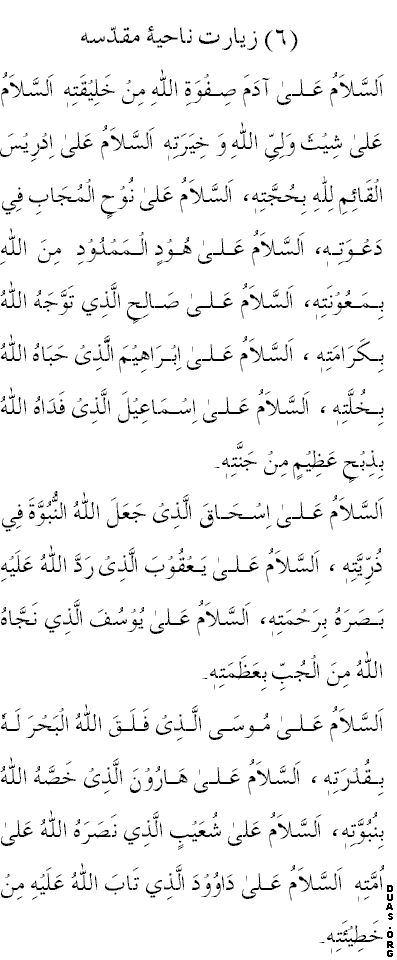 (٦) زیارت ناحیۀ مقدّسه
اَلسَّلاَمُ عَلىٰ آدَمَ صِفْوَةِ اللهِ مِنْ خَلِيْقَتِهٖ اَلسَّلاَمُ
عَلىٰ شِيْثَ وَلِيِّ اللهِ وَ خِيَرَتِهٖ اَلسَّلاَمُ عَلىٰ اِدْرِيْسَ
الْقَائِمِ لِلّٰهِ بِحُجَّتِهٖ، اَلسَّلاَمُ عَلىٰ نُوْحٍ الْمُجَابِ فِي
دَعْوَتِهٖ، اَلسَّلاَمُ عَلىٰ هُوْدٍ الْمَمْدُوْدِ مِنَ اللهِ
بِمَعُوْنَتِهٖ، اَلسَّلاَمُ عَلىٰ صَالِحٍ الَّذِي تَوَّجَهُ اللهُ
بِكَرَامَتِهٖ، اَلسَّلاَمُ عَلىٰ اِبْرَاهِيْمَ الَّذِىْ حَبَاهُ اللهُ
بِخُلَّتِهٖ، اَلسَّلاَمُ عَلىٰ اِسْمَاعِيْلَ الَّذِىْ فَدَاهُ اللهُ
بِذِبْحٍ عَظِيْمٍ مِنْ جَنَّتِهٖ۔
اَلسَّلاَمُ عَلىٰ اِسْحَاقَ الَّذِىْ جَعَلَ اللهُ النُّبُوَّةَ فِي
ذُرِّيَّتِهٖ، اَلسَّلاَمُ عَلىٰ يَعْقُوْبَ الَّذِىْ رَدَّ اللهُ عَلَيْهِ
بَصَرَهُ بِرَحْمَتِهٖ، اَلسَّلاَمُ عَلىٰ يُوْسُفَ الَّذِي نَجَّاهُ
اللهُ مِنَ الْجُبِّ بِعَظَمَتِهٖ۔
اَلسَّلاَمُ عَلىٰ مُوسَى الَّذِىْ فَلَقَ اللهُ الْبَحْرَ لَهٗ
بِقُدْرَتِهٖ، اَلسَّلاَمُ عَلىٰ هَارُوْنَ الَّذِىْ خَصَّهُ اللهُ
بِنُبُوَّتِهٖ، اَلسَّلاَمُ عَلىٰ شُعَيْبٍ الَّذِي نَصَرَهُ اللهُ عَلىٰ
اُمَّتِهٖ اَلسَّلاَمُ عَلىٰ دَاوُوْدَ الَّذِي تَابَ اللهُ عَلَيْهِ مِنْ
خَطِيْئَتِهٖ۔
DUAS.ORG